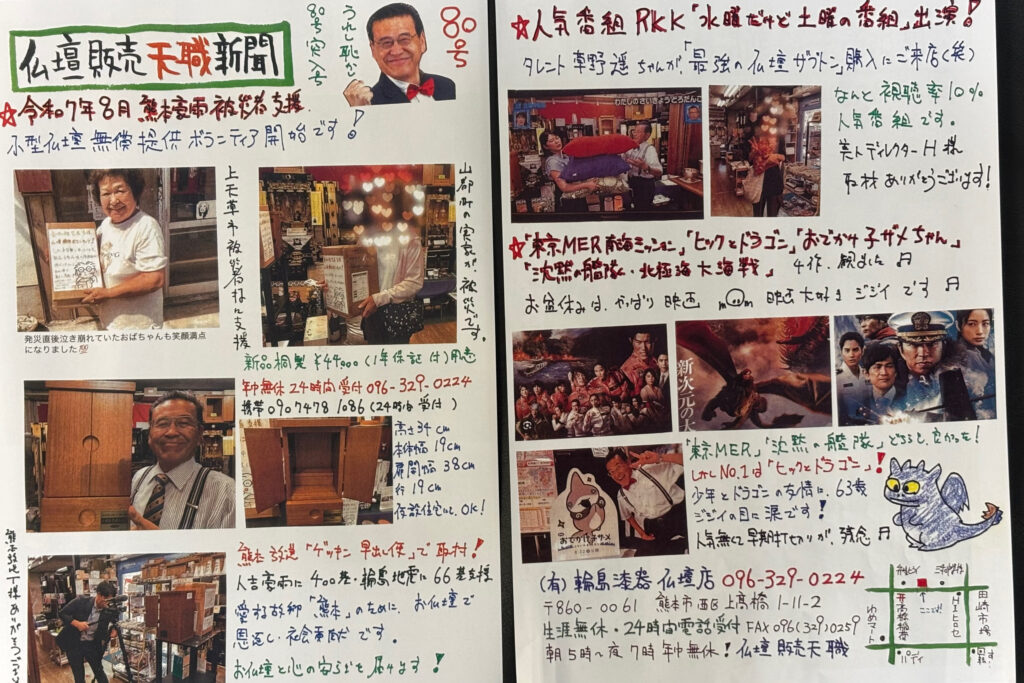 仏壇販売天職新聞
80号突入号
うれし恥かし
80号
☆令和7年8月 熊本豪雨被災者支援
小型仏壇無償提供ボランティア開始です!
上天草市被災者様に支援
山都町の実家が被災です。
発災直後泣き崩れていたおばちゃんも笑顔満点
になりました💯
新品桐製 ¥44,000 (1年保証付)用意
年中無休24時間受付096-329-0224
携帯09074781086(24時間受付)
高さ34cm
本体幅19cm
扉開幅38cm
行19cm
仮設住宅にも、OK!
熊本放送「ゲツキン早出し便」で取材!
人吉豪雨に400基・輪島地震に66基支援
愛する故郷「熊本」のために、お仏壇で
恩返し・社会貢献です。
お仏壇と心の安らぎを届けます!
ありがとうございます
☆人気番組RKK「水曜だけど土曜の番組」出演!
タレント草野遥ちゃんが「最強の仏壇ザブトン」購入にご来店(笑)
わたしのさいきょうどろだんご
なんと視聴率10%
人気番組です。
美人ディレクターH様
取材ありがとうございます!
☆「東京MER南海ミッション」「ヒックとドラゴン」「おでかけ子ザメちゃん」
「沈黙の艦隊・北極海大海戦」 4作、観ました♬
お盆休みは、やっぱり映画 m○m 映画大好きジジイです♬
新次元の
おでかけ子ザメ
東京MER、「沈黙の艦隊」どちらも、良かった!
しかしNo.1は「ヒックとドラゴン」!
少年とドラゴンの友情に、63歳
ジジイの目に涙です!
人気無くて早期打ち切りが、残念♬
(有)輪島漆器仏壇店 096-329-0224
〒860-0061 熊本市西区上高橋1-11-2
生涯無休・24時間電話受付 FAX096(329)0259
朝5時〜夜7時年中無休!仏壇販売天職
ここだよ
高橋稲荷
ゆめマート
ヒロセ
田崎市場